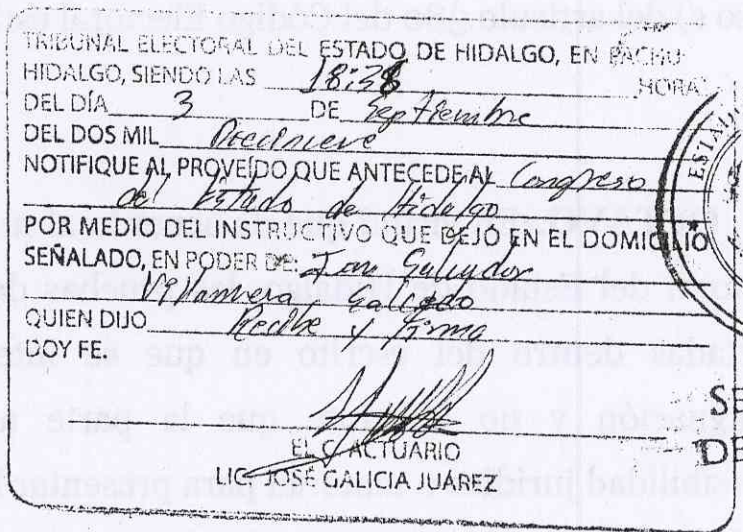 TRIBUNAL ELECTORAL DEL ESTADO DE HIDALGO, EN PACHU
HIDALGO, SIENDO LAS 18:38 HORA
DEL DÍA 3 DE Septiembre
DEL DOS MIL Diecinueve
NOTIFIQUE AL PROVEÍDO QUE ANTECEDE AL Congreso
del Estado de Hidalgo
POR MEDIO DEL INSTRUCTIVO QUE DEJÓ EN EL DOMICILIO
SEÑALADO, EN PODER DE: Ian Salvador
Villanueva Galindo
QUIEN DIJO Recibe y Firma
DOY FE.
EL C. ACTUARIO
LIC. JOSÉ GALICIA JUAREZ
ESTAD
SE
DE